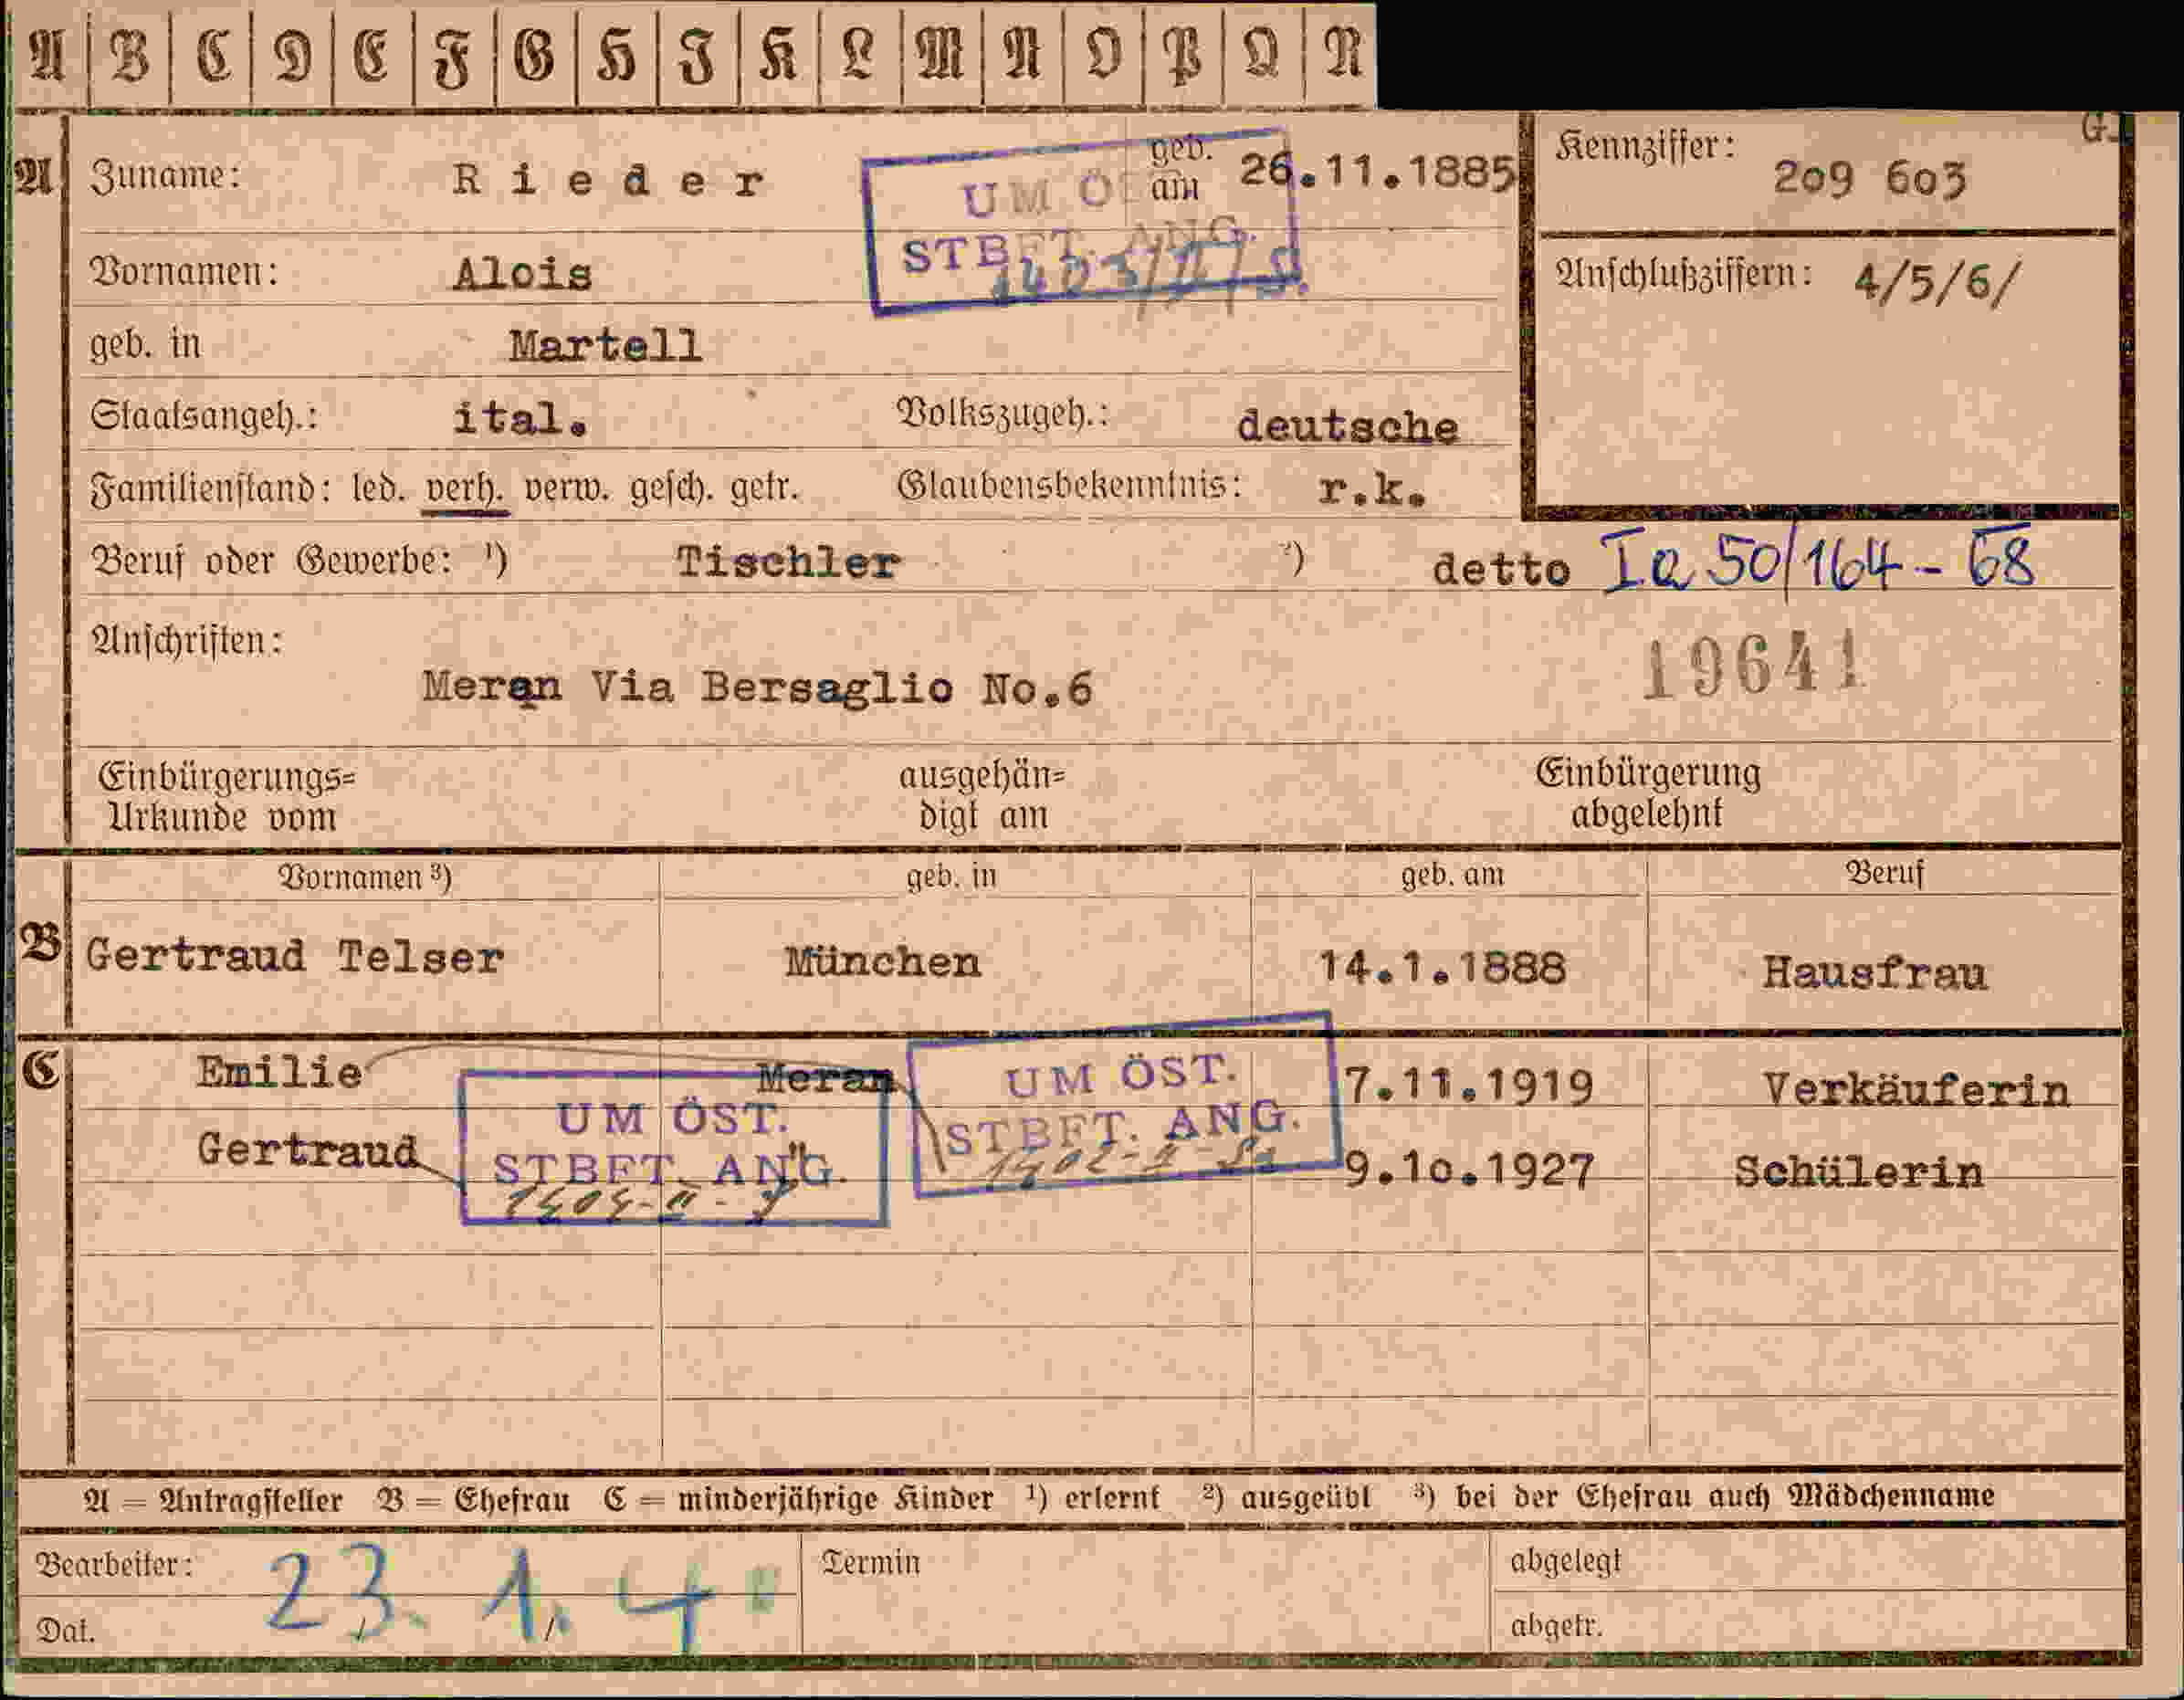 A B C D E F G H J K L M N O P Q R
A Zuname: Rieder geb. am 26.11.1885
Kennziffer: 209 603
UM ÖST.
STBFT. ANG.
Vornamen: Alois
Anschlußziffern: 4/5/6/
geb. in Martell
Staatsangeh.: ital. Volkszugeh.: deutsche
Familienstand: led. verh. verw. gesch. getr. Glaubensbekenntnis: r.k.
Beruf oder Gewerbe: ¹) Tischler ²) detto Ia 50/164-68
Anschriften:
19641
Meran Via Bersaglio No.6
Einbürgerungs= ausgehän= Einbürgerung
Urkunde vom digt am abgelehnt
Vornamen ³) geb. in geb. am Beruf
B Gertraud Telser München 14.1.1888 Hausfrau
C Emilie Meran 7.11.1919 Verkäuferin
UM ÖST.
STBFT. ANG.
Gertraud " 9.10.1927 Schülerin
UM ÖST.
STBFT. ANG.
A = Antragsteller B = Ehefrau C = minderjährige Kinder ¹) erlernt ²) ausgeübt ³) bei der Ehefrau auch Mädchenname
Bearbeiter: Termin abgelegt
23. 1. 40
Dat. abgetr.